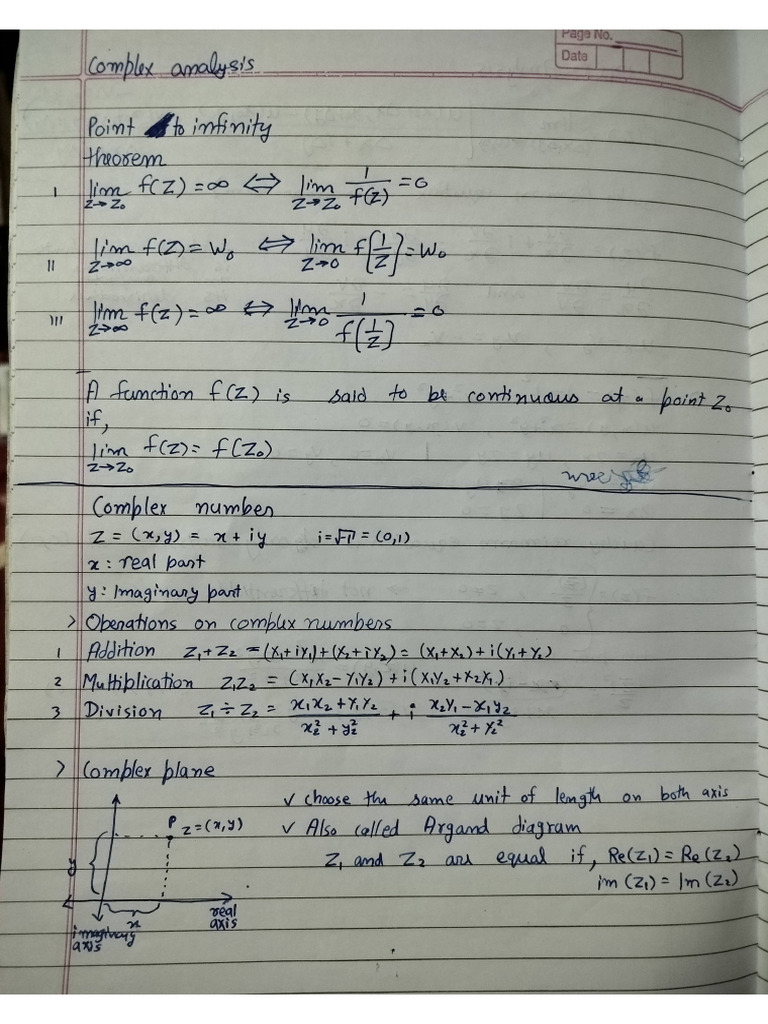 Page No.
Date
Complex analysis
Point to infinity
theorem
I lim z→z₀ f(z) = ∞ ⇔ lim z→z₀ 1/f(z) = 0
II lim z→∞ f(z) = w₀ ⇔ lim z→0 f[1/z] = w₀
III lim z→∞ f(z) = ∞ ⇔ lim z→0 1/f[1/z] = 0
A function f(z) is said to be continuous at a point z₀
if,
lim z→z₀ f(z) = f(z₀)
Complex number
z = (x,y) = x + iy i = √-1 = (0,1)
x : real part
y : Imaginary part
> Operations on complex numbers
1 Addition z₁+z₂ = (x₁+iy₁)+(x₂+iy₂) = (x₁+x₂)+i(y₁+y₂)
2 Multiplication z₁z₂ = (x₁x₂-y₁y₂)+i(x₁y₂+x₂y₁)
3 Division z₁÷z₂ = (x₁x₂+y₁y₂)/(x₂²+y₂²) + i (x₂y₁-x₁y₂)/(x₂²+y₂²)
> Complex plane
✓ choose the same unit of length on both axis
P z=(x,y) ✓ Also called Argand diagram
z₁ and z₂ are equal if, Re(z₁) = Re(z₂)
im(z₁) = Im(z₂)
y
x
real
axis
imaginary
axis